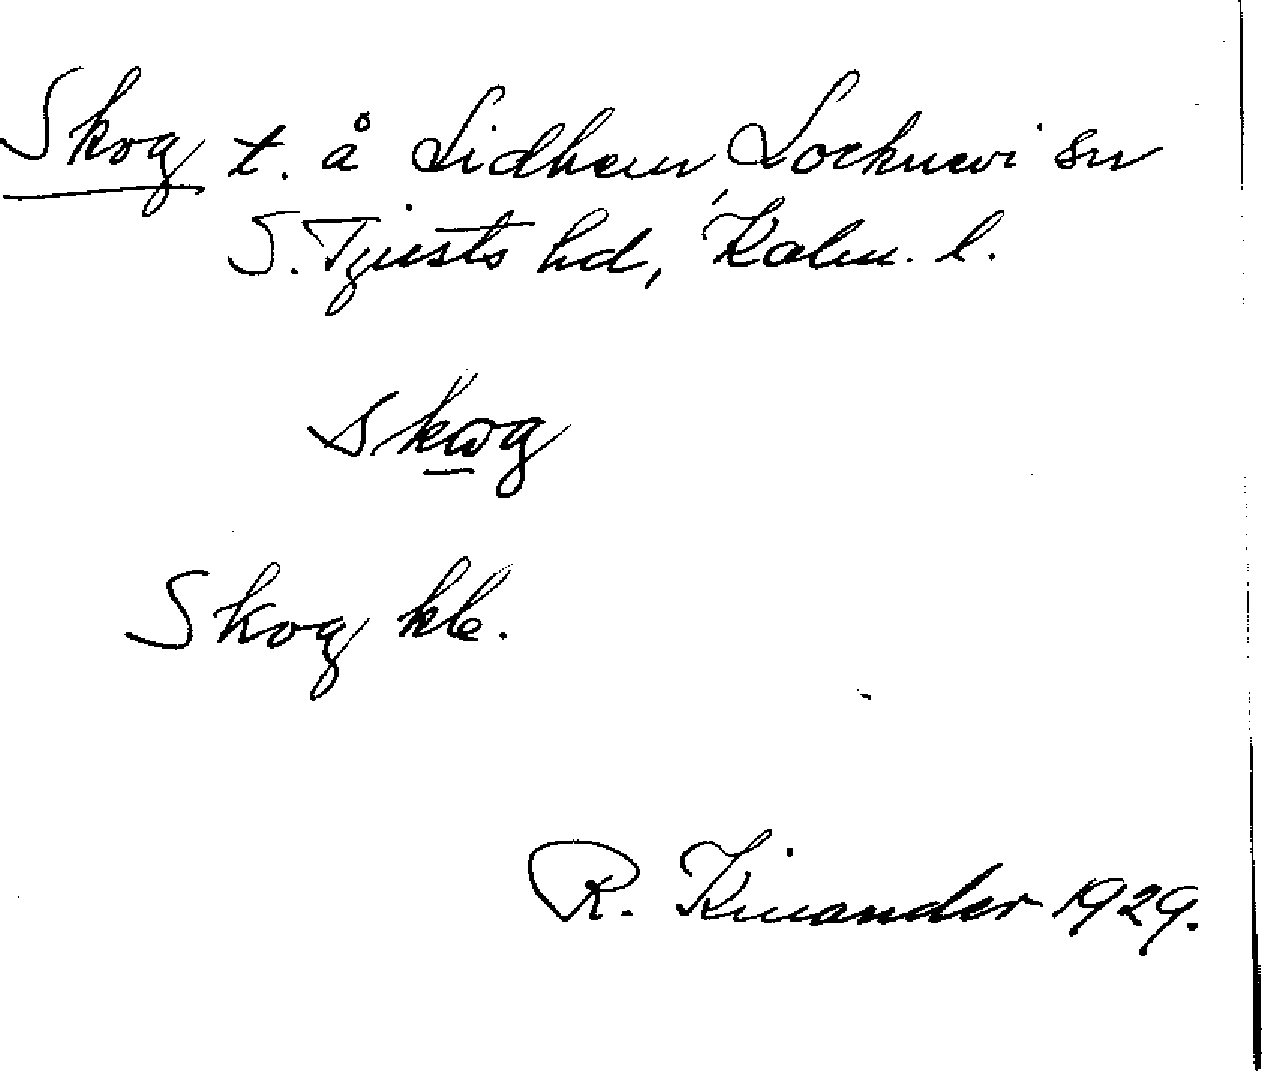 Skog t. å Lidhem, Locknevi sn
S. Tjusts hd, Kalm. l.
skωg
Skog kb.
R. Kinander 1929.